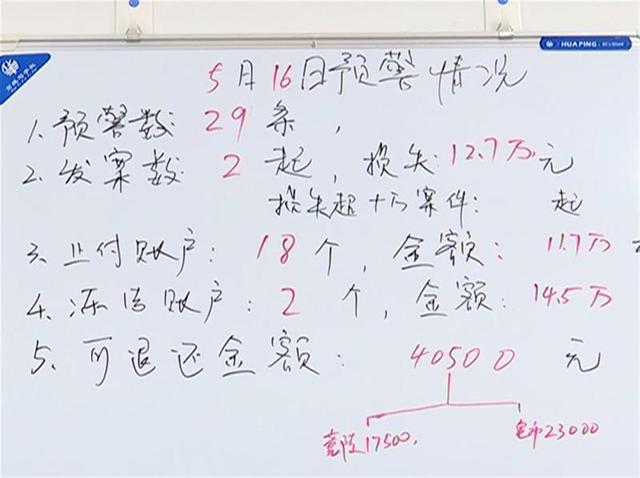 HUAPING
5月16日预警情况
1、预警数:29条,
2、发案数 2起,损失:12.7万元
损失超十万案件: 起
3、止付账户:18个,金额:11.7万
4、冻结账户:2个,金额:14.5万
5、可退还金额:40500元
17500, 23000